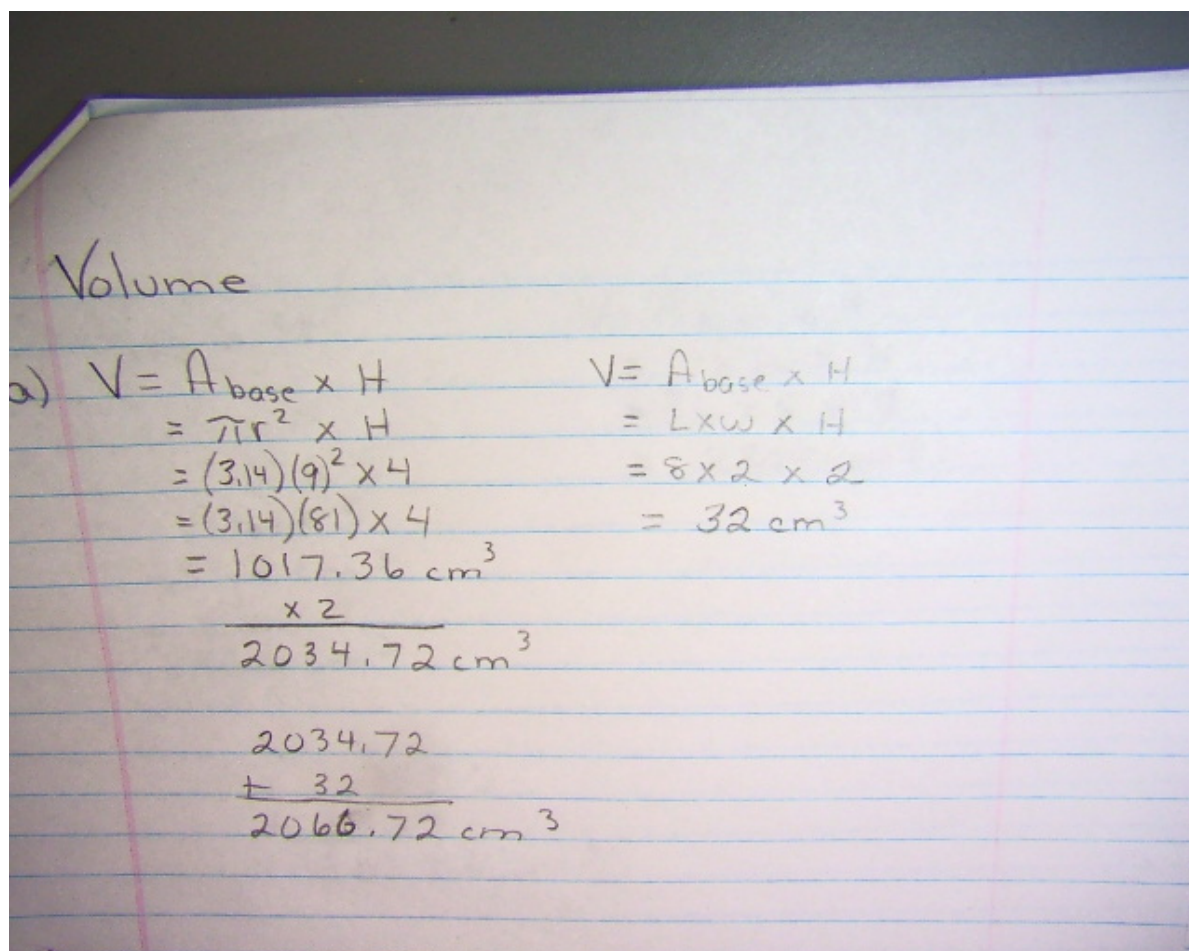 Volume
a) V = A base x H
= πr² x H
= (3.14)(9)² x 4
= (3.14)(81) x 4
= 1017.36 cm³
x 2
2034.72 cm³
2034.72
+ 32
2066.72 cm³
V = A base x H
= L x w x H
= 8 x 2 x 2
= 32 cm³